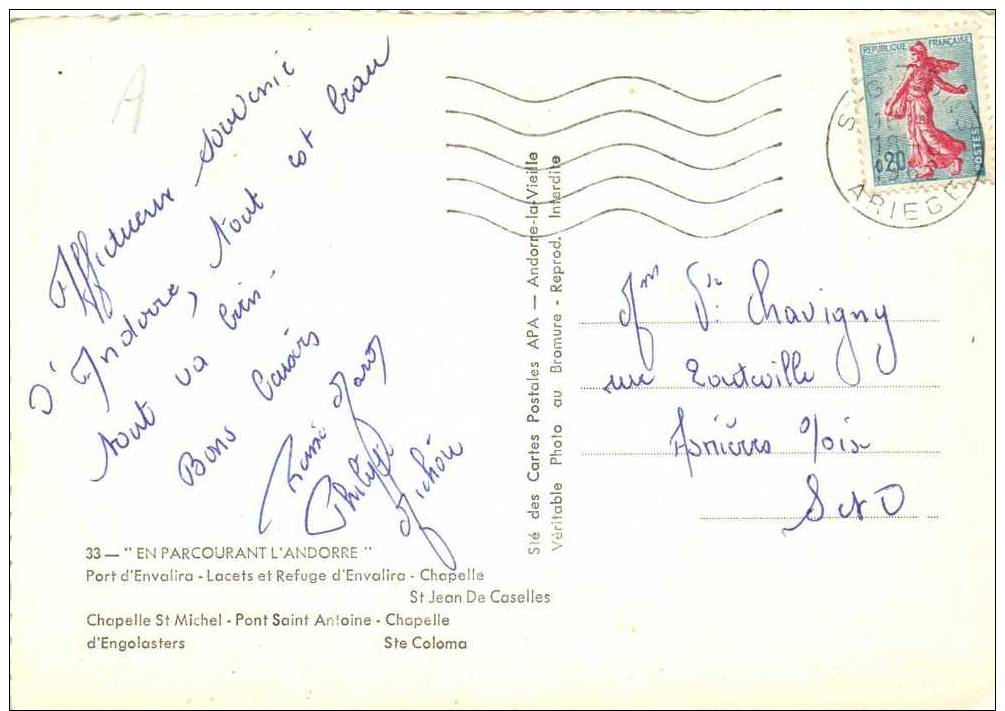 A
Affectueux souvenir
d'Andorre, tout est beau
tout va bien -
Bons baisers
Philippe
Michèle
33 — " EN PARCOURANT L'ANDORRE "
Port d'Envalira - Lacets et Refuge d'Envalira - Chapelle
St Jean De Caselles
Chapelle St Michel - Pont Saint Antoine - Chapelle
d'Engolasters Ste Coloma
Sté des Cartes Postales APA — Andorre-la-Vieille
Véritable Photo au Bromure - Reprod. Interdite
REPUBLIQUE FRANÇAISE
0,20
POSTES
ARIEGE
Chavigny
rue
Asnières s/oise
S et O